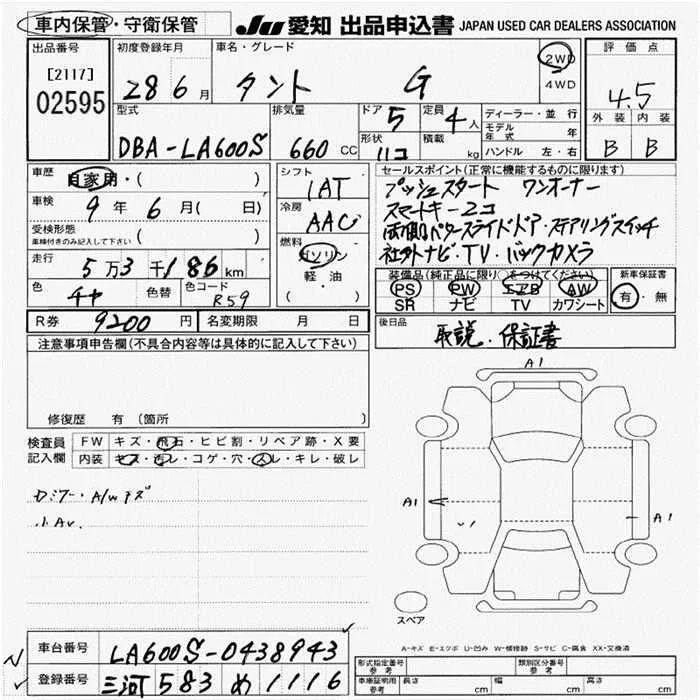 車内保管・守衛保管
JU 愛知 出品申込書 JAPAN USED CAR DEALERS ASSOCIATION
出品番号 初度登録年月 車名・グレード 2WD 評価点
[2117] 28 6月 タント G 4WD 4.5
02595
型式 排気量 ドア 5 定員 4人 ディーラー・並行 外装 内装
モデル年式 年
DBA-LA600S 660CC 形状 ハコ 積載 kg ハンドル 左・右 B B
車歴 自家用・( ) シフト セールスポイント(正常に機能するものに限ります)
IAT プッシュスタート ワンオーナー
車検 9年 6月( 日) 冷房 スマートキー2コ
AAC 両側パワースライドドア・ステアリングスイッチ
受検形態 ( )
車検付きのみ記入して下さい
燃料 社外ナビ・TV・バックカメラ
走行 5万3千186km ガソリン 装備品(純正品に限り○をつけてください) 新車保証書
軽・油 PS PW エアB AW 有・無
色 チャ 色替 色コード R59 ( ・ ) SR ナビ TV カワシート
R券 9200円 名変期限 月 日 後日品
取説・保証書
注意事項申告欄(不具合内容等は具体的に記入して下さい)
A1
修復歴 有(箇所 )
検査員 FW キズ・飛石・ヒビ割・リペア跡・X要
記入欄 内装 キズ・汚レ・コゲ・穴・スレ・キレ・破レ
A/wキズ
小AV.
A1 A1
スペア
A-キズ E-エクボ U-凹み W-補修跡 S-サビ C-腐食 XX-交換済
車台番号 LA600S-0438943
形式指定番号 参考 類別区分番号 参考
登録番号 三河 583 め 1116
車庫証明用 参考 長さ cm 幅 cm 高さ cm